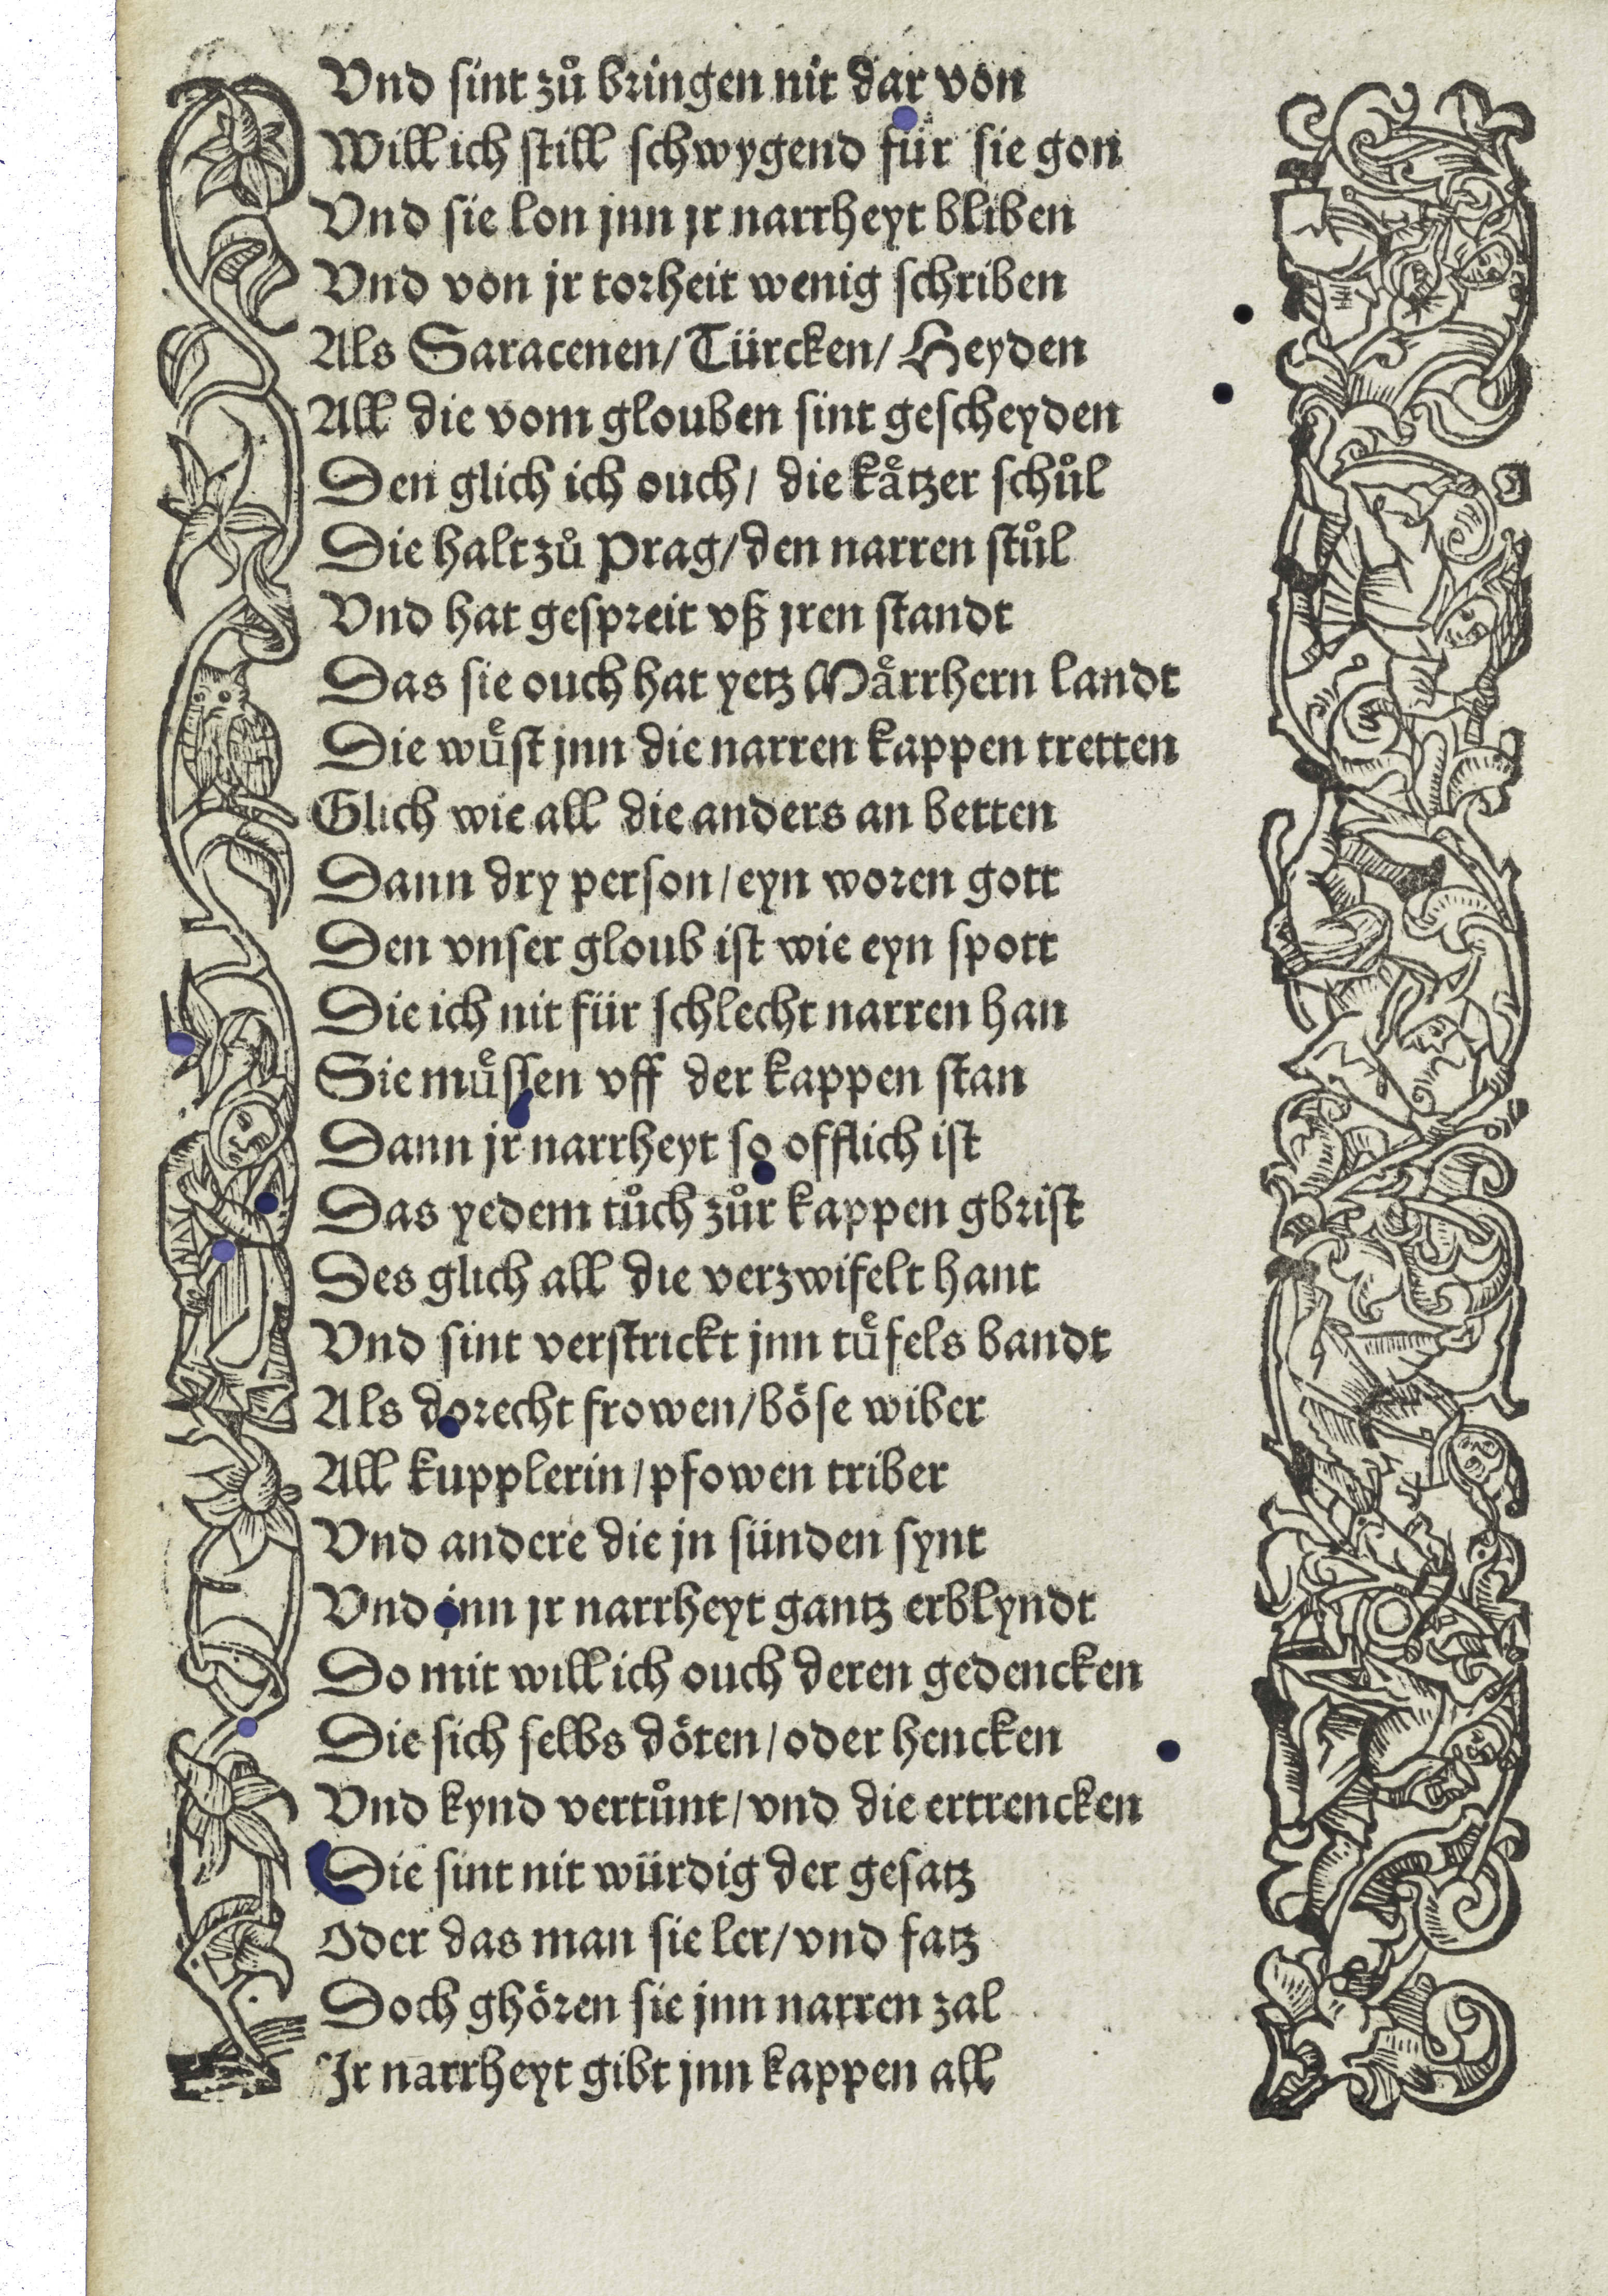 Vnd sint zů bringen nit dar von
Will ich still schwygend für sie gon
Vnd sie lon jnn jr narrheyt bliben
Vnd von jr torheit wenig schriben
Als Saracenen/ Türcken/ Heyden
All die vom glouben sint gescheyden
Den glich ich ouch/ die kåtzer schůl
Die halt zů Prag/ den narren stůl
Vnd hat gespreit vß jren standt
Das sie ouch hat yetz Mårrhern landt
Die wuͤst jnn die narren kappen tretten
Glich wie all die anders an betten
Dann dry person/ eyn woren gott
Den vnser gloub ist wie eyn spott
Die ich nit für schlecht narren han
Sie muͤssen vff der kappen stan
Dann jr narrheyt so offlich ist
Das yedem tůch zůr kappen gbrist
Des glich all die verzwifelt hant
Vnd sint verstrickt jnn tuͤfels bandt
Als dorecht frowen/ böse wiber
All kupplerin/ pfowen triber
Vnd andere die jn sünden synt
Vnd jnn jr narrheyt gantz erblyndt
Do mit will ich ouch deren gedencken
Die sich selbs döten/ oder hencken
Vnd kynd vertůnt/ vnd die ertrencken
Die sint nit würdig der gesatz
Oder das man sie ler/ vnd fatz
Doch ghören sie jnn narren zal
Ir narrheyt gibt jnn kappen all